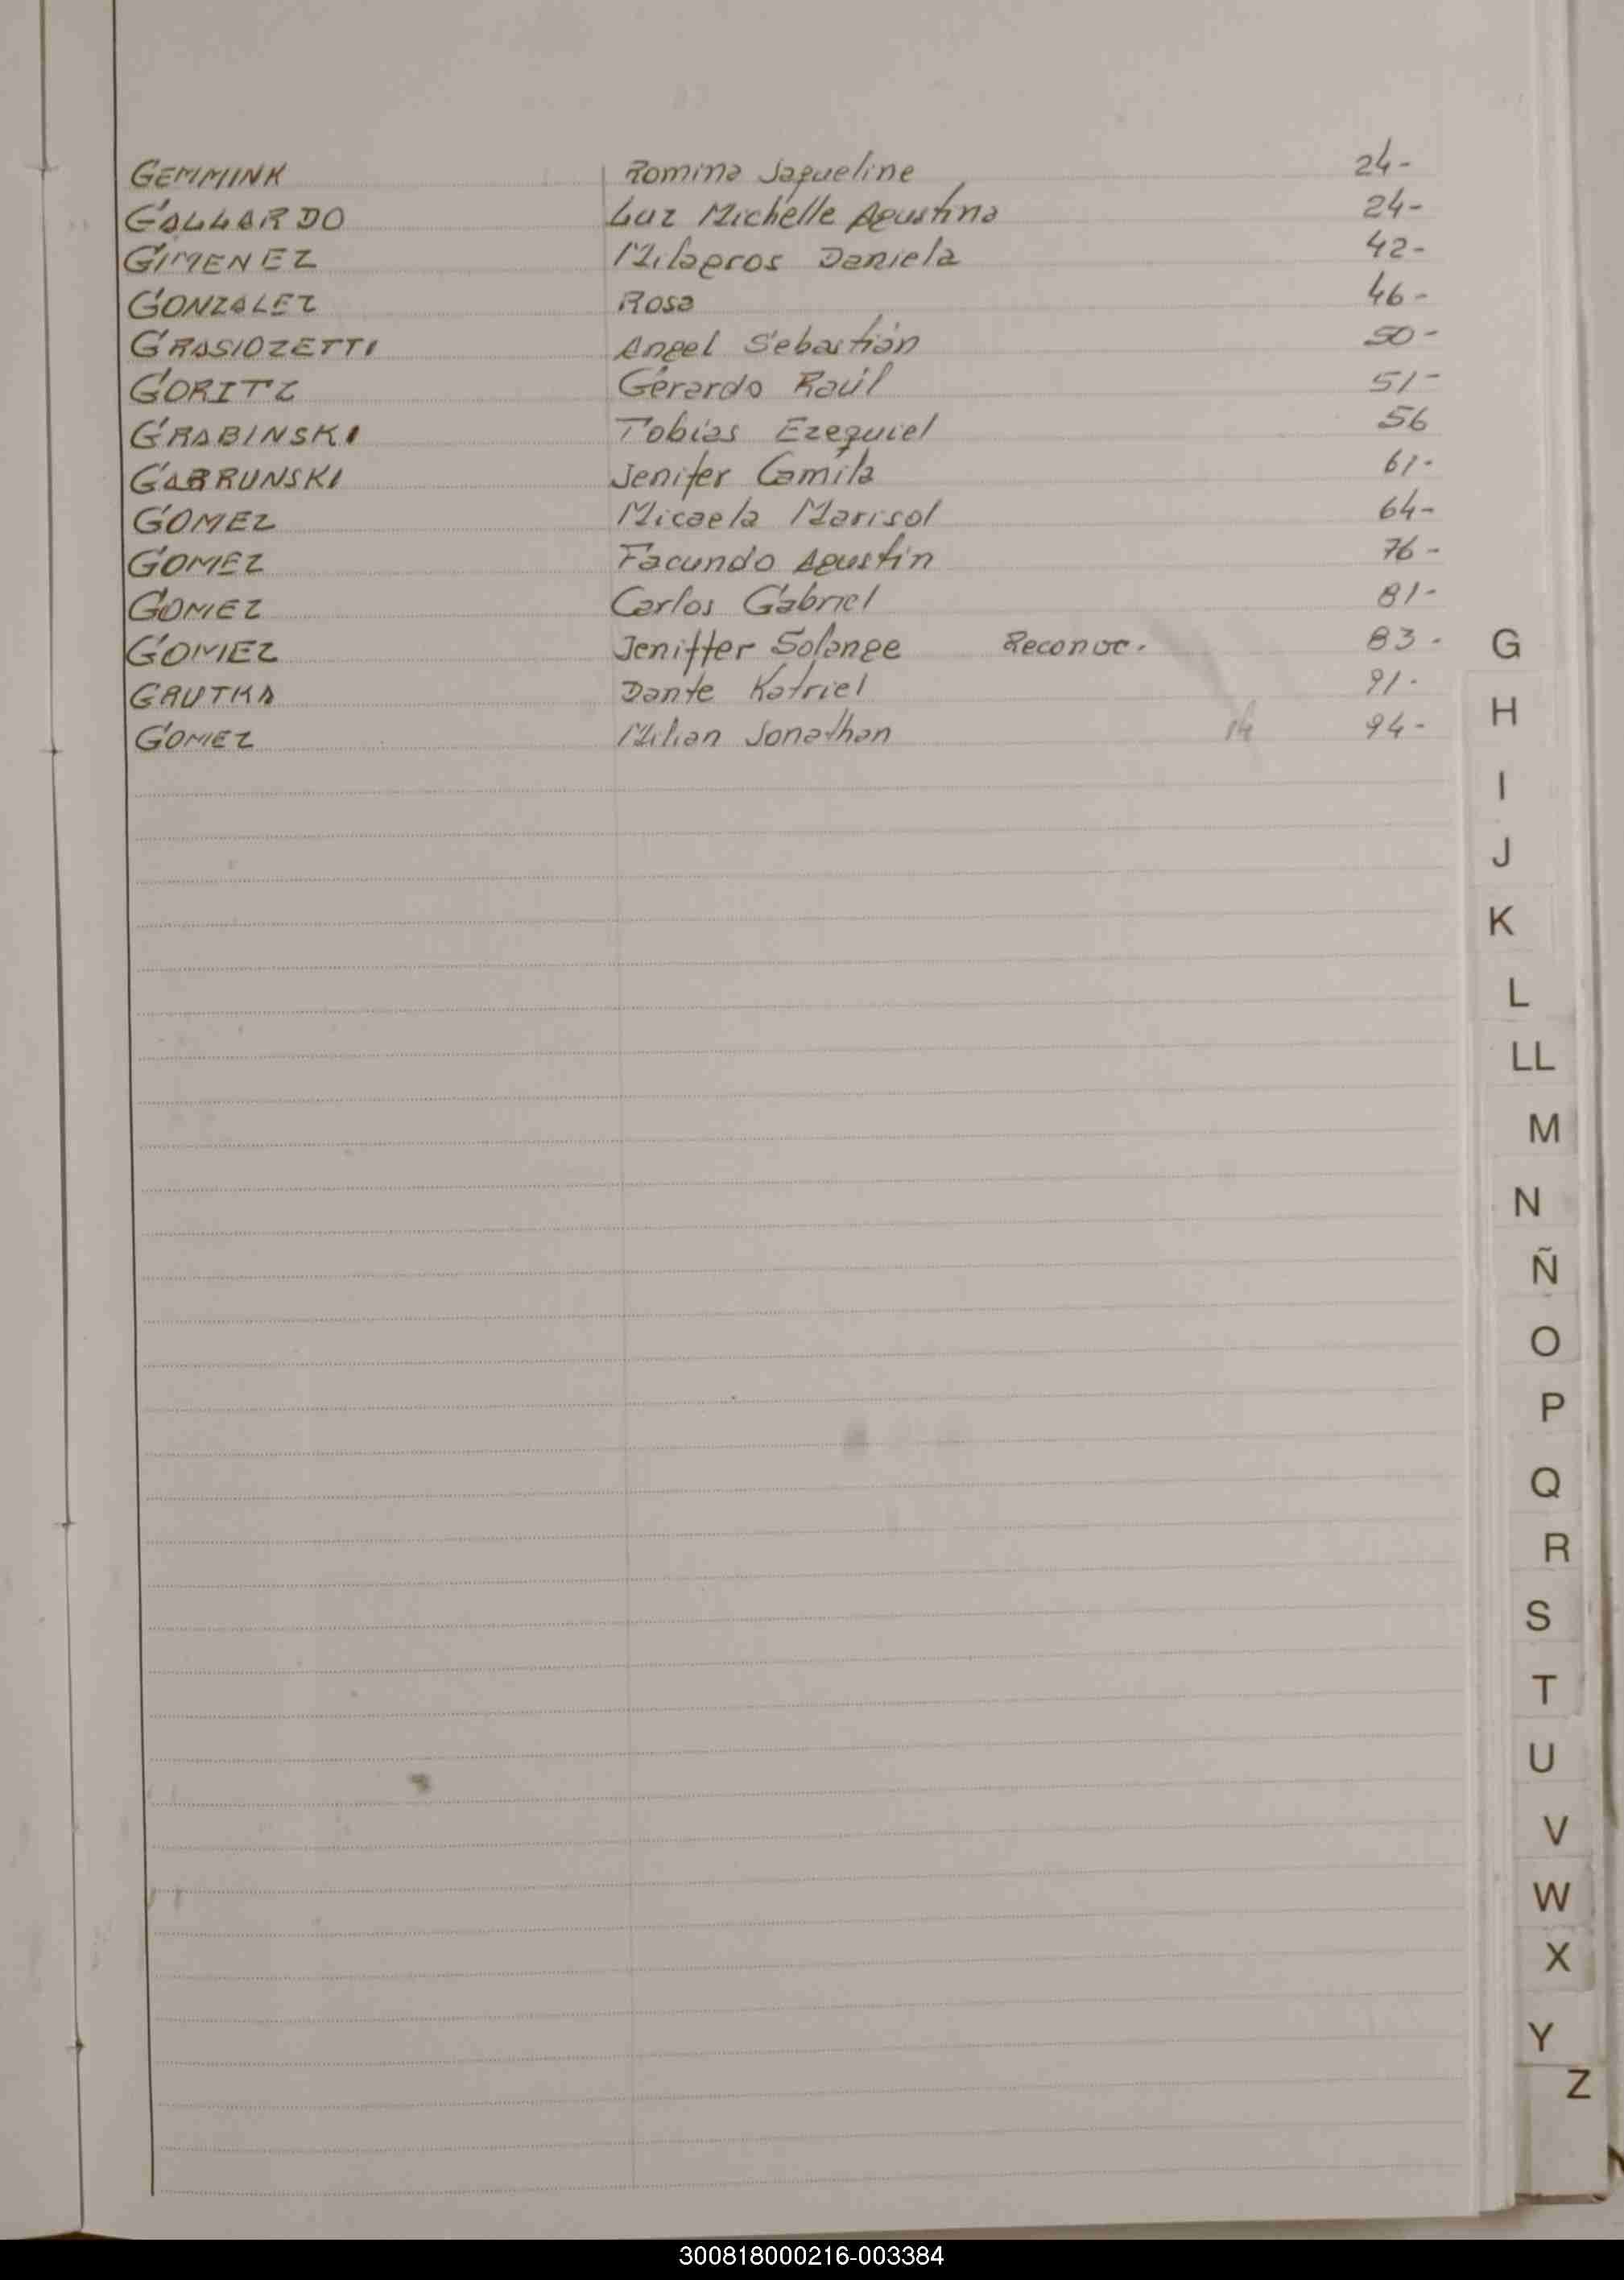 GEMMINK Romina Jaqueline 24-
GALLARDO Luz Michelle Agustina 24-
GIMENEZ Milagros Daniela 42-
GONZALEZ Rosa 46-
GRASIOZETTI Angel Sebastián 50-
GORITZ Gerardo Raúl 51-
GRABINSKI Tobias Ezequiel 56
GABRUNSKI Jenifer Camila 61-
GOMEZ Micaela Marisol 64-
GOMEZ Facundo Agustin 76-
GOMEZ Carlos Gabriel 81-
GOMEZ Jeniffer Solange Reconoc. 83-
GRUTKA Dante Katriel 91-
GOMEZ Milian Jonathan 94-
G
H
I
J
K
L
LL
M
N
Ñ
O
P
Q
R
S
T
U
V
W
X
Y
Z
300818000216-003384